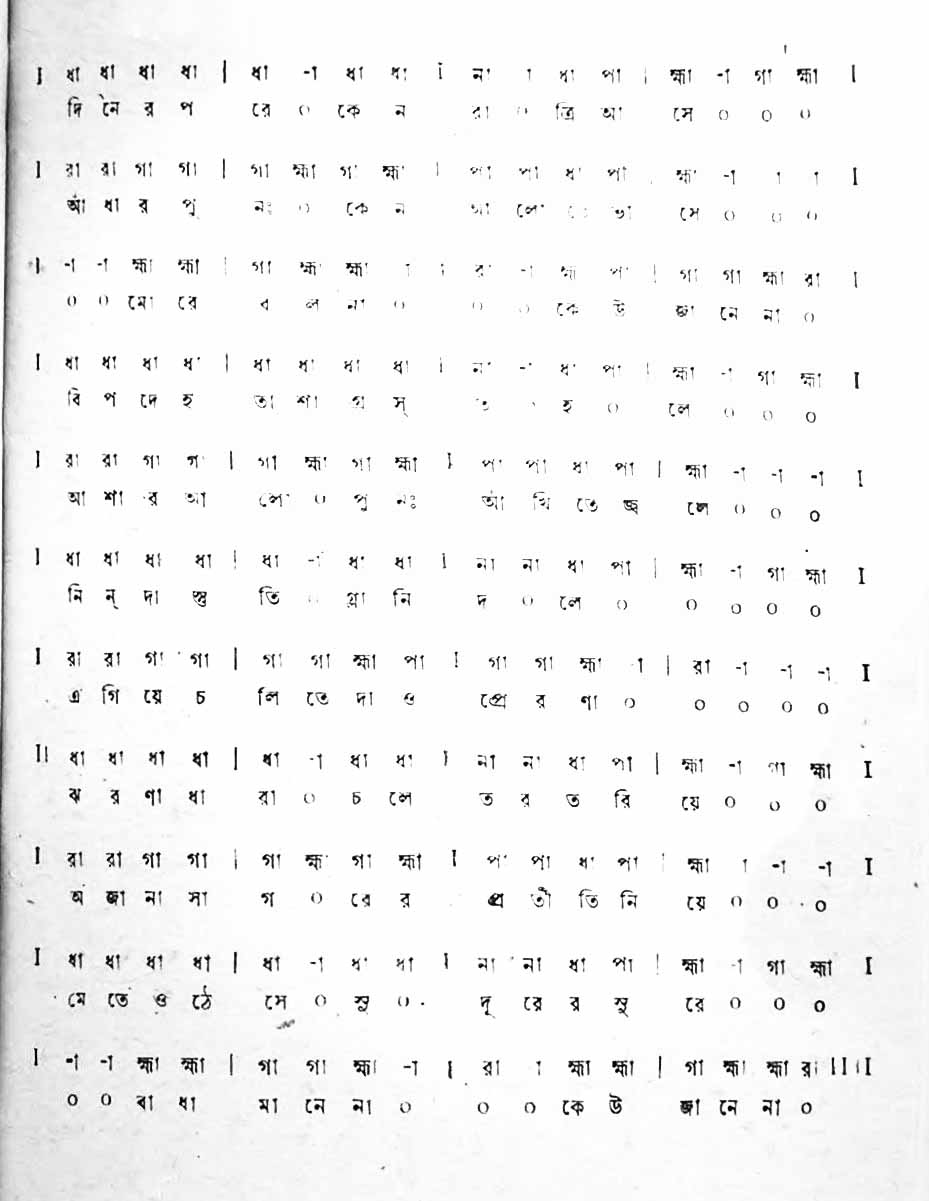 I ধা ধা ধা ধা | ধা -া ধা ধা I না া ধা পা | হ্মা -া গা হ্মা I
দি নৈ র প রে ০ কেন রা ০ ত্রি আ সে ০ ০ ০
I রা রা গা গা | গা হ্মা গা হ্মা I পা পা ধা পা | হ্মা -া া া I
আঁ ধা র পু নঃ ০ কে ন আ লো ভা সে ০ ০ ০
I -া -া হ্মা হ্মা | গা হ্মা হ্মা া I রা -া হ্মা পা | গা গা হ্মা রা I
০ ০ মো রে ব ল না ০ ০ ০ কে উ জা নে না ০
I ধা ধা ধা ধা | ধা ধা ধা ধা I না -া ধা পা | হ্মা -া গা হ্মা I
বি প দে হ তা শা গ্র স্ ত হ ০ লে ০ ০ ০
I রা রা গা গা | গা হ্মা গা হ্মা I পা পা ধা পা | হ্মা -া -া -া I
আ শা র আ লো ০ পু নঃ আঁ খি তে জ্ব লে ০ ০ ০
I ধা ধা ধা ধা | ধা -া ধা ধা I না না ধা পা | হ্মা -া গা হ্মা I
নি ন্ দা স্তু তি ০ গ্লা নি দ ০ লে ০ ০ ০ ০ ০
I রা রা গা গা | গা গা হ্মা পা I গা গা হ্মা া | রা -া -া -া I
এ গি য়ে চ লি তে দা ও প্রে র ণা ০ ০ ০ ০ ০
II ধা ধা ধা ধা | ধা -া ধা ধা I না না ধা পা | হ্মা -া গা হ্মা I
ঝ র ণা ধা রা ০ চ লে ত র ত রি য়ে ০ ০ ০
I রা রা গা গা | গা হ্মা গা হ্মা I পা পা ধা পা | হ্মা া -া -া I
অ জা না সা গ ০ রে র প্র তী তি নি য়ে ০ ০ ০
I ধা ধা ধা ধা | ধা -া ধা ধা I না না ধা পা | হ্মা -া গা হ্মা I
মে তে ও ঠে সে ০ সু ০ দূ রে র সু রে ০ ০ ০
I -া -া হ্মা হ্মা | গা গা হ্মা -া I রা া হ্মা হ্মা | গা হ্মা হ্মা রা IIII
০ ০ বা ধা মা নে না ০ ০ ০ কে উ জা নে না ০